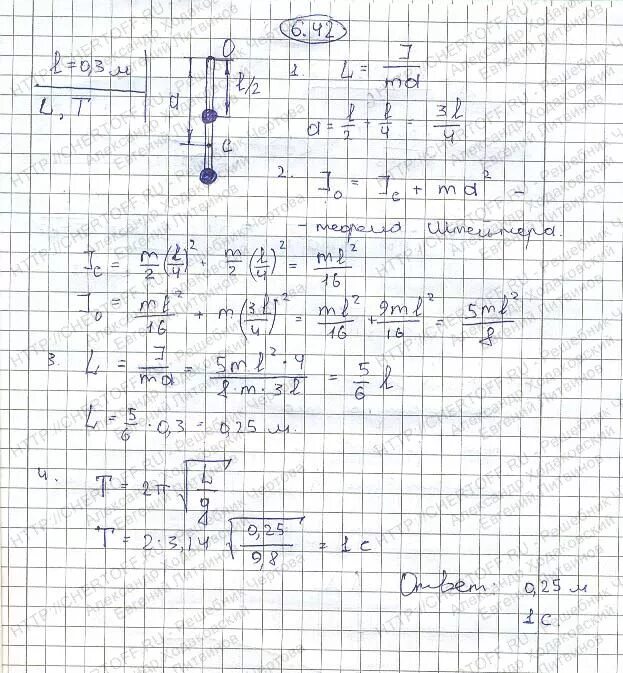 6.42
l = 0,3 м
L, T
O
d
l/2
C
1. L = J / md
d = l/2 + l/4 = 3l/4
2. J₀ = J_c + md² –
– теорема Штейнера.
J_c = m/2 (l/4)² + m/2 (l/4)² = ml²/16
J₀ = ml²/16 + m(3l/4)² = ml²/16 + 9ml²/16 = 5ml²/8
3. L = J/md = 5ml²·4 / 8·m·3l = 5/6 l
L = 5/6 · 0,3 = 0,25 м.
4. T = 2π √(L/g)
T = 2·3,14 √(0,25/9,8) = 1 с
Ответ: 0,25 м
1 с.
HTTP://CHERTOFF.RU - Решебник Чертова
Александр Ходаковский
Евгений Литвинов